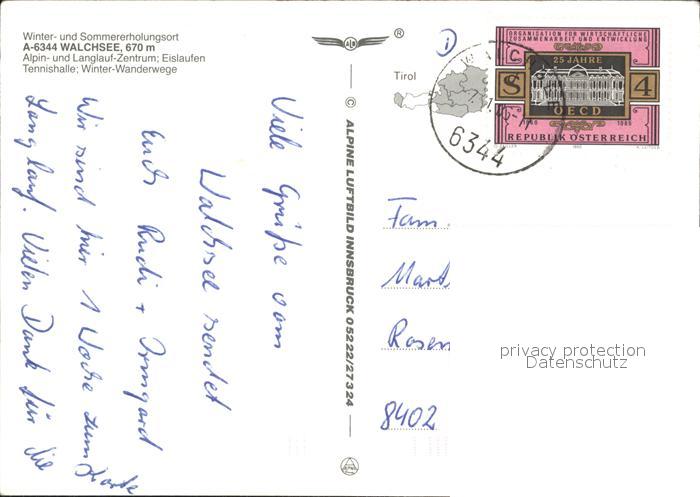 Winter- und Sommererholungsort
A-6344 WALCHSEE, 670 m
Alpin- und Langlauf-Zentrum; Eislaufen
Tennishalle; Winter-Wanderwege
®
Tirol
ORGANISATION FÜR WIRTSCHAFTLICHE
ZUSAMMENARBEIT UND ENTWICKLUNG
25 JAHRE
S 4
OECD
1960 1985
REPUBLIK ÖSTERREICH
6344
© ALPINE LUFTBILD INNSBRUCK 05222/27324
Viele Grüße vom
Walchsee sendet
Euch Rudi + Irmgard
Wir sind hier 1 Woche zum
Langlauf. Vielen Dank für die
Karte
Fam.
Mart
Rosen
8402
privacy protection
Datenschutz